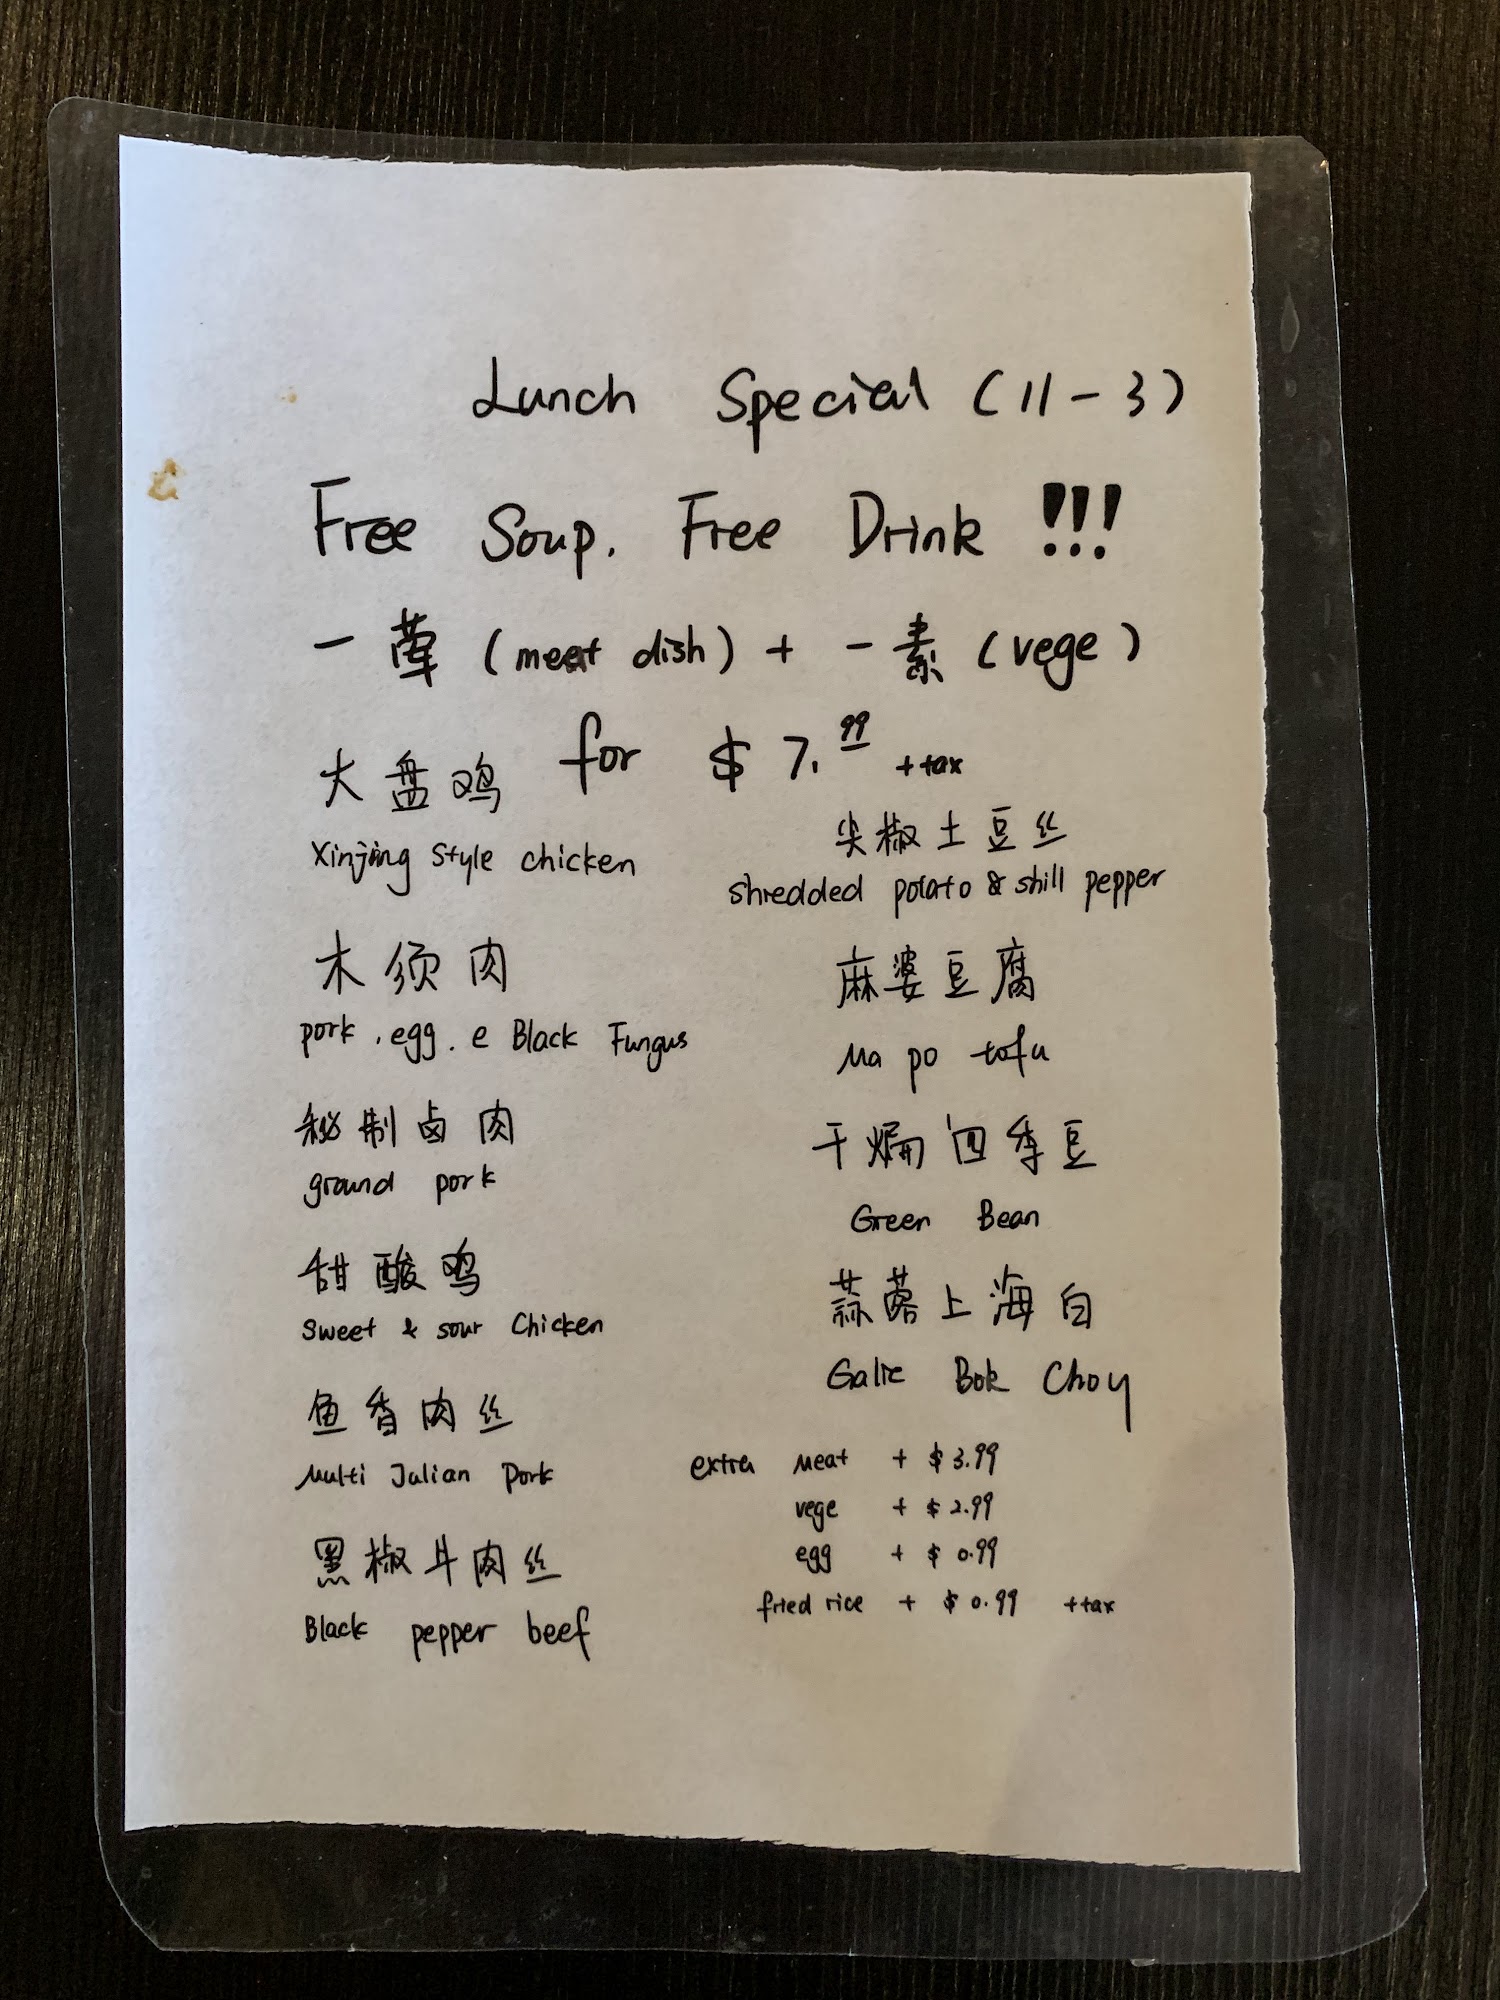 Lunch Special (11-3)
Free Soup. Free Drink !!!
一荤 (meat dish) + 一素 (vege)
for $7.99 +tax
大盘鸡
Xinjing style chicken
木须肉
pork, egg. e Black Fungus
秘制卤肉
ground pork
甜酸鸡
sweet & sour Chicken
鱼香肉丝
Multi Julian Pork
黑椒牛肉丝
Black pepper beef
尖椒土豆丝
shredded potato & shill pepper
麻婆豆腐
Ma po tofu
干焗四季豆
Green Bean
蒜蓉上海白
Galic Bok Choy
extra meat + $3.99
vege + $2.99
egg + $0.99
fried rice + $0.99 +tax